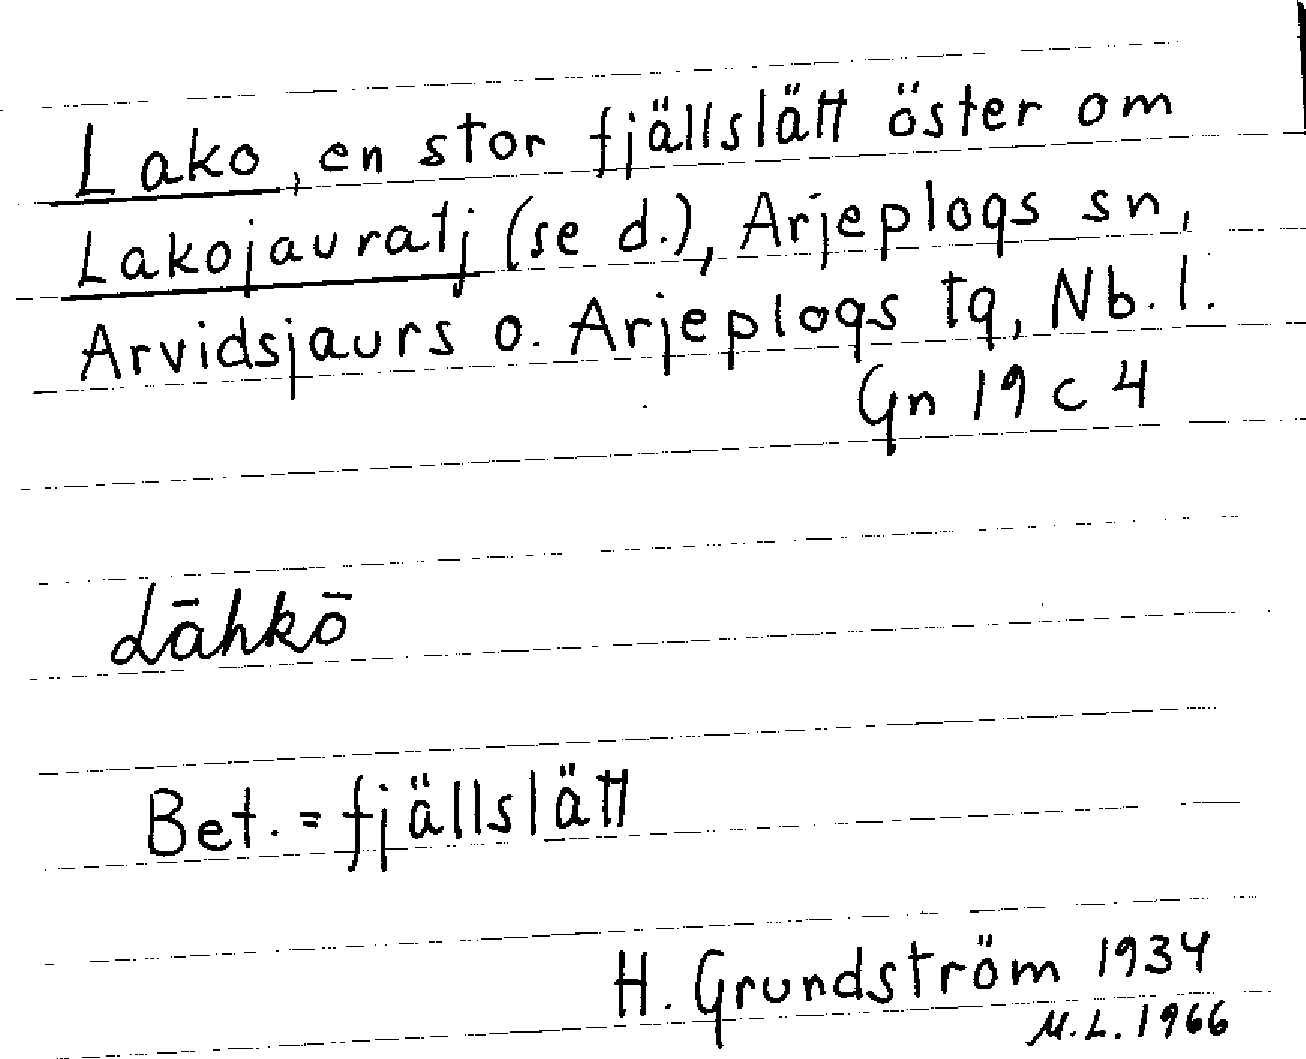 Lako, en stor fjällslätt öster om
Lakojauratj (se d.), Arjeplogs sn,
Arvidsjaurs o. Arjeplogs tg, Nb. l.
Gn 19 c 4
Lāhkō
Bet. = fjällslätt
H. Grundström 1934
M.L. 1966